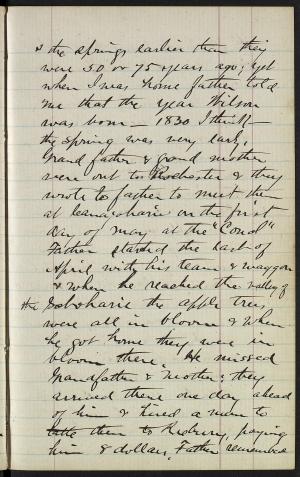 & the springs earlier than they
were 50 or 75 years ago; yet
when I was home father told
me that the year Wilson
was born – 1830 I think –
the spring was very early.
Grandfather & grand mother
were out to Rochester & they
wrote to father to meet them
at Canajoharie on the first
day of may at the "Canal"
Father started the last of
April with his team & waggon
& when he reached the valley of
the Soboharie the apple trees
were all in bloom & when
he got home they were in
bloom there. He missed
Grandfather & Mother; they
arrived there one day ahead
of him & hired a man to
them to, paying
him 8 dollars. Father remembered